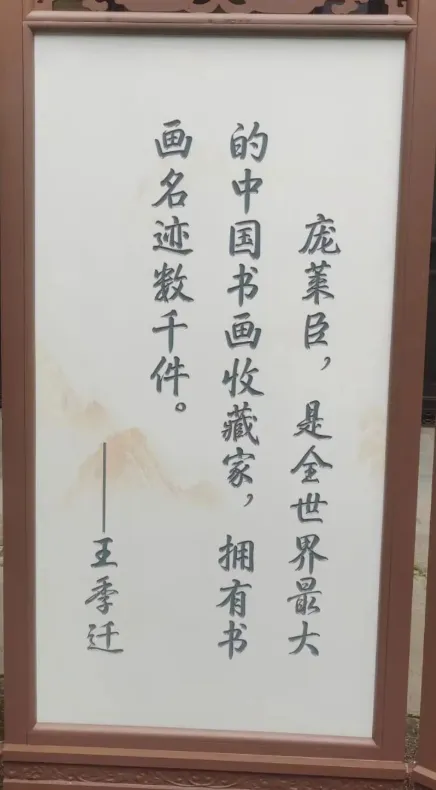 庞莱臣，是全世界最大
的中国书画收藏家，拥有书
画名迹数千件。
——王季迁